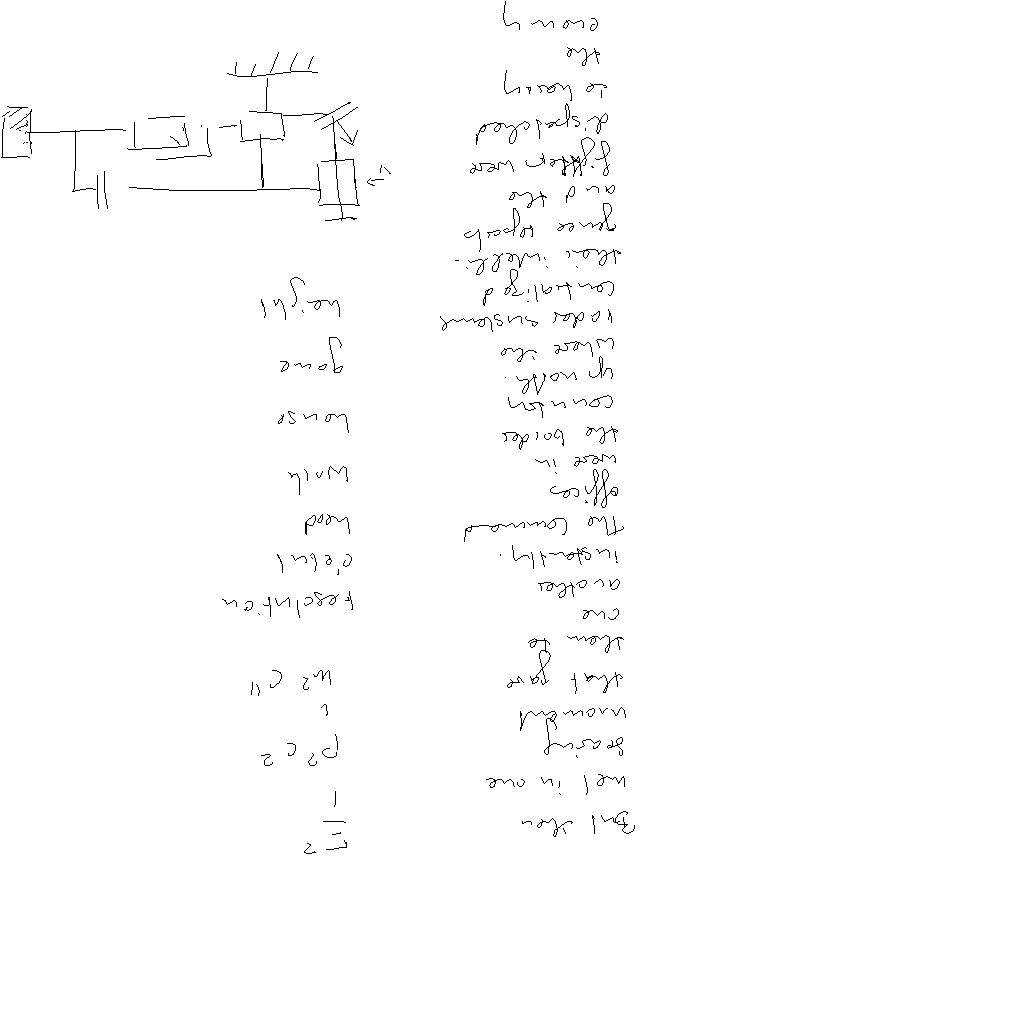 But they
met in one
searing
moment
that gave
them to
one
another
instantly.
The Command
offices
were in
the border
country
up north,
where the
radar systems
centralized
their intelli-
gence reports
and the
fighters were
dispatched
to harry
the
enemy
E 2
=
p2 c2
m2 c4
resolution
head
walk
house
game
height